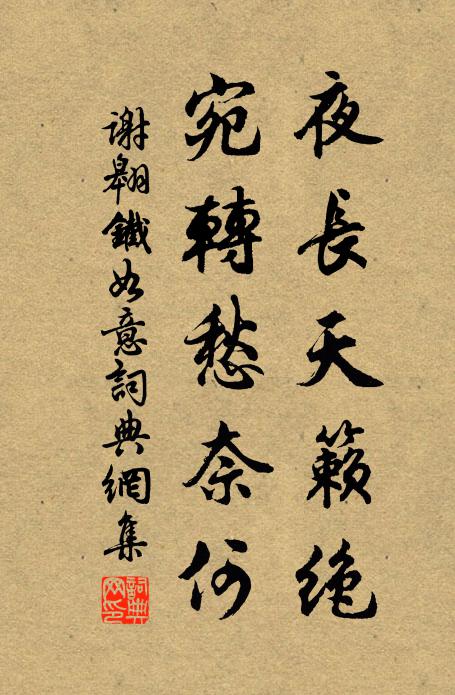 夜長天籟絶
宛轉愁奈何
謝翱鐵如意詞典網集
詞典網印